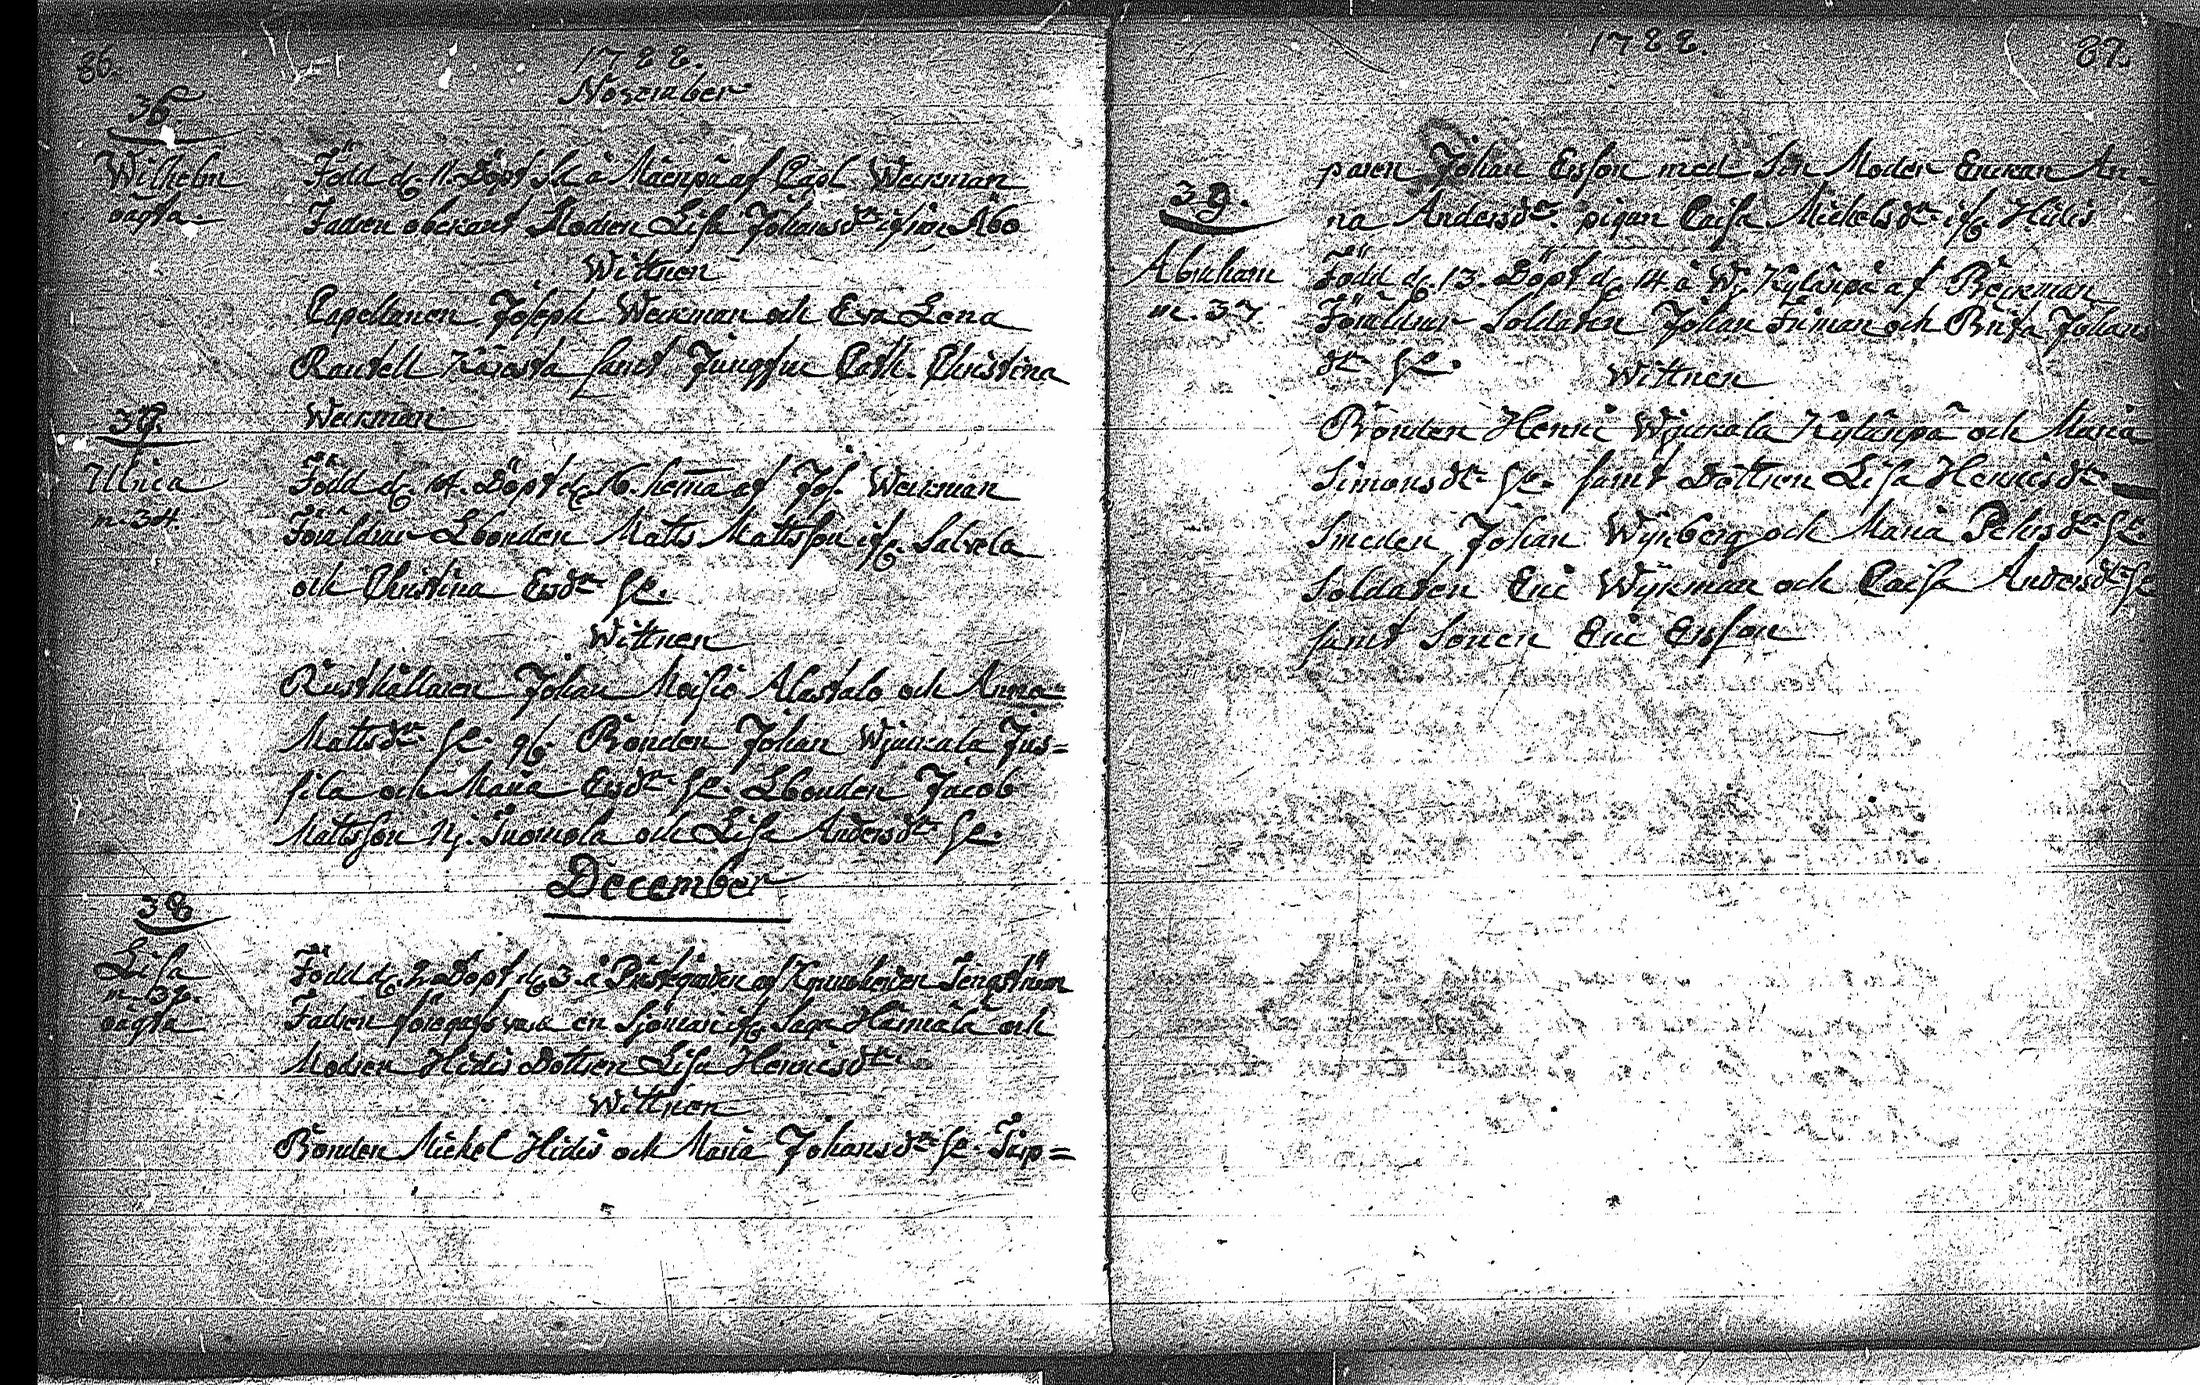 86.
1788.
November
36.
Wilhelm
oägta.
Född d. 11. Döpt d. å Mäenpä af Capl Weckman
Fadren obekant Modren Lisa Johansdr ifrån Åbo
Wittnen
Capellanen Joseph Weckman och Eva Lena
Rautell Käresta samt Jungfru Cath. Christina
Weckman
37.
Ulrica
n. 34
Född d. 14. Döpt d. 16. hema af Jos. Weckman
Föräldrar Lbonden Matts Mattsson ifr. Salvela
och Christina Ersdr
Wittnen
Rusthållaren Johan Moisio Alastalo och Anna
Mattsdr Bonden Johan Wjuckala Jus=
sila och Maria Ersdr Lbonden Jacob
Mattsson Nj. Tuomola och Lisa Andersdr
December
38
Lisa
n. 36.
oägta
Född d. 2. Döpt d. 3. i Prästgården af Kyrckoherden Tengström
Fadren föregifs vara en Sjöman ifr. Hannala och
Modren Hidis Dottren Lisa Henricsdr
Wittnen
Bonden Mickel Hidis och Maria Johansdr Torp=
1788.
87.
paren Johan Ersson med Sin Moder Enckan An=
na Andersdr pigan Caisa Mickelsdr ifr. Hidis
39.
Abraham
n. 37
Född d. 13. Döpt d. 14 å Wj. Kylänpä af Böckman
Föräldrar Soldaten Johan Friman och Brita Johans
dr
Wittnen
Bonden Henric Wjuckala Kylänpä och Maria
Simonsdr samt Dottren Lisa Henricsdr
Smeden Johan Wijkberg och Maria Pehrsdr
Soldaten Eric Wijkman och Caisa Andersdr
samt Sonen Eric Ersson